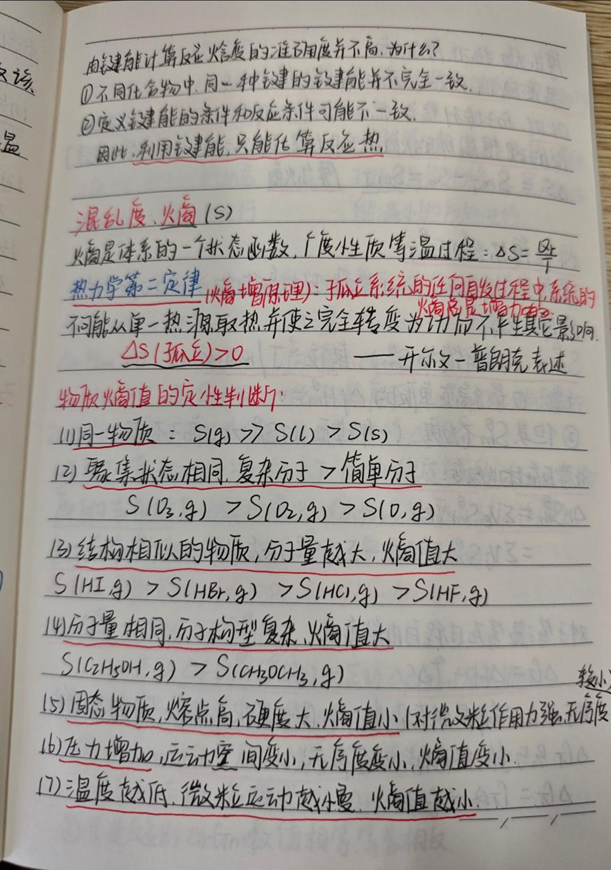 由键能计算反应焓变的准确度并不高,为什么?
①不同化合物中,同一种键的键能并不完全一致.
②定义键能的条件和反应条件可能不一致.
因此,利用键能,只能估算反应热
混乱度、火熵(S)
火熵是体系的一个状态函数,广度性质 等温过程:ΔS=Qr/T
热力学第二定律(火熵增原理):孤立系统的任何自发过程中,系统的火熵总是增加
不可能从单一热源取热并使之完全转变为功而不产生其它影响.
ΔS(孤立)>0 ——开尔文-普朗克表述
物质火熵值的定性判断:
(1)同一物质:S(g)>>S(l)>S(s)
(2)聚集状态相同,复杂分子>简单分子
S(O₃,g)>S(O₂,g)>S(O,g)
(3)结构相似的物质,分子量越大,火熵值大
S(HI,g)>S(HBr,g)>S(HCl,g)>S(HF,g)
(4)分子量相同,分子构型复杂,火熵值大
S(C₂H₅OH,g)>S(CH₃OCH₃,g)
较小)
(5)固态物质,熔点高,硬度大,火熵值小(对微粒作用力强,无序度
(6)压力增加,运动空间变小,无序度变小,火熵值变小.
(7)温度越低,微粒运动越慢,火熵值越小.